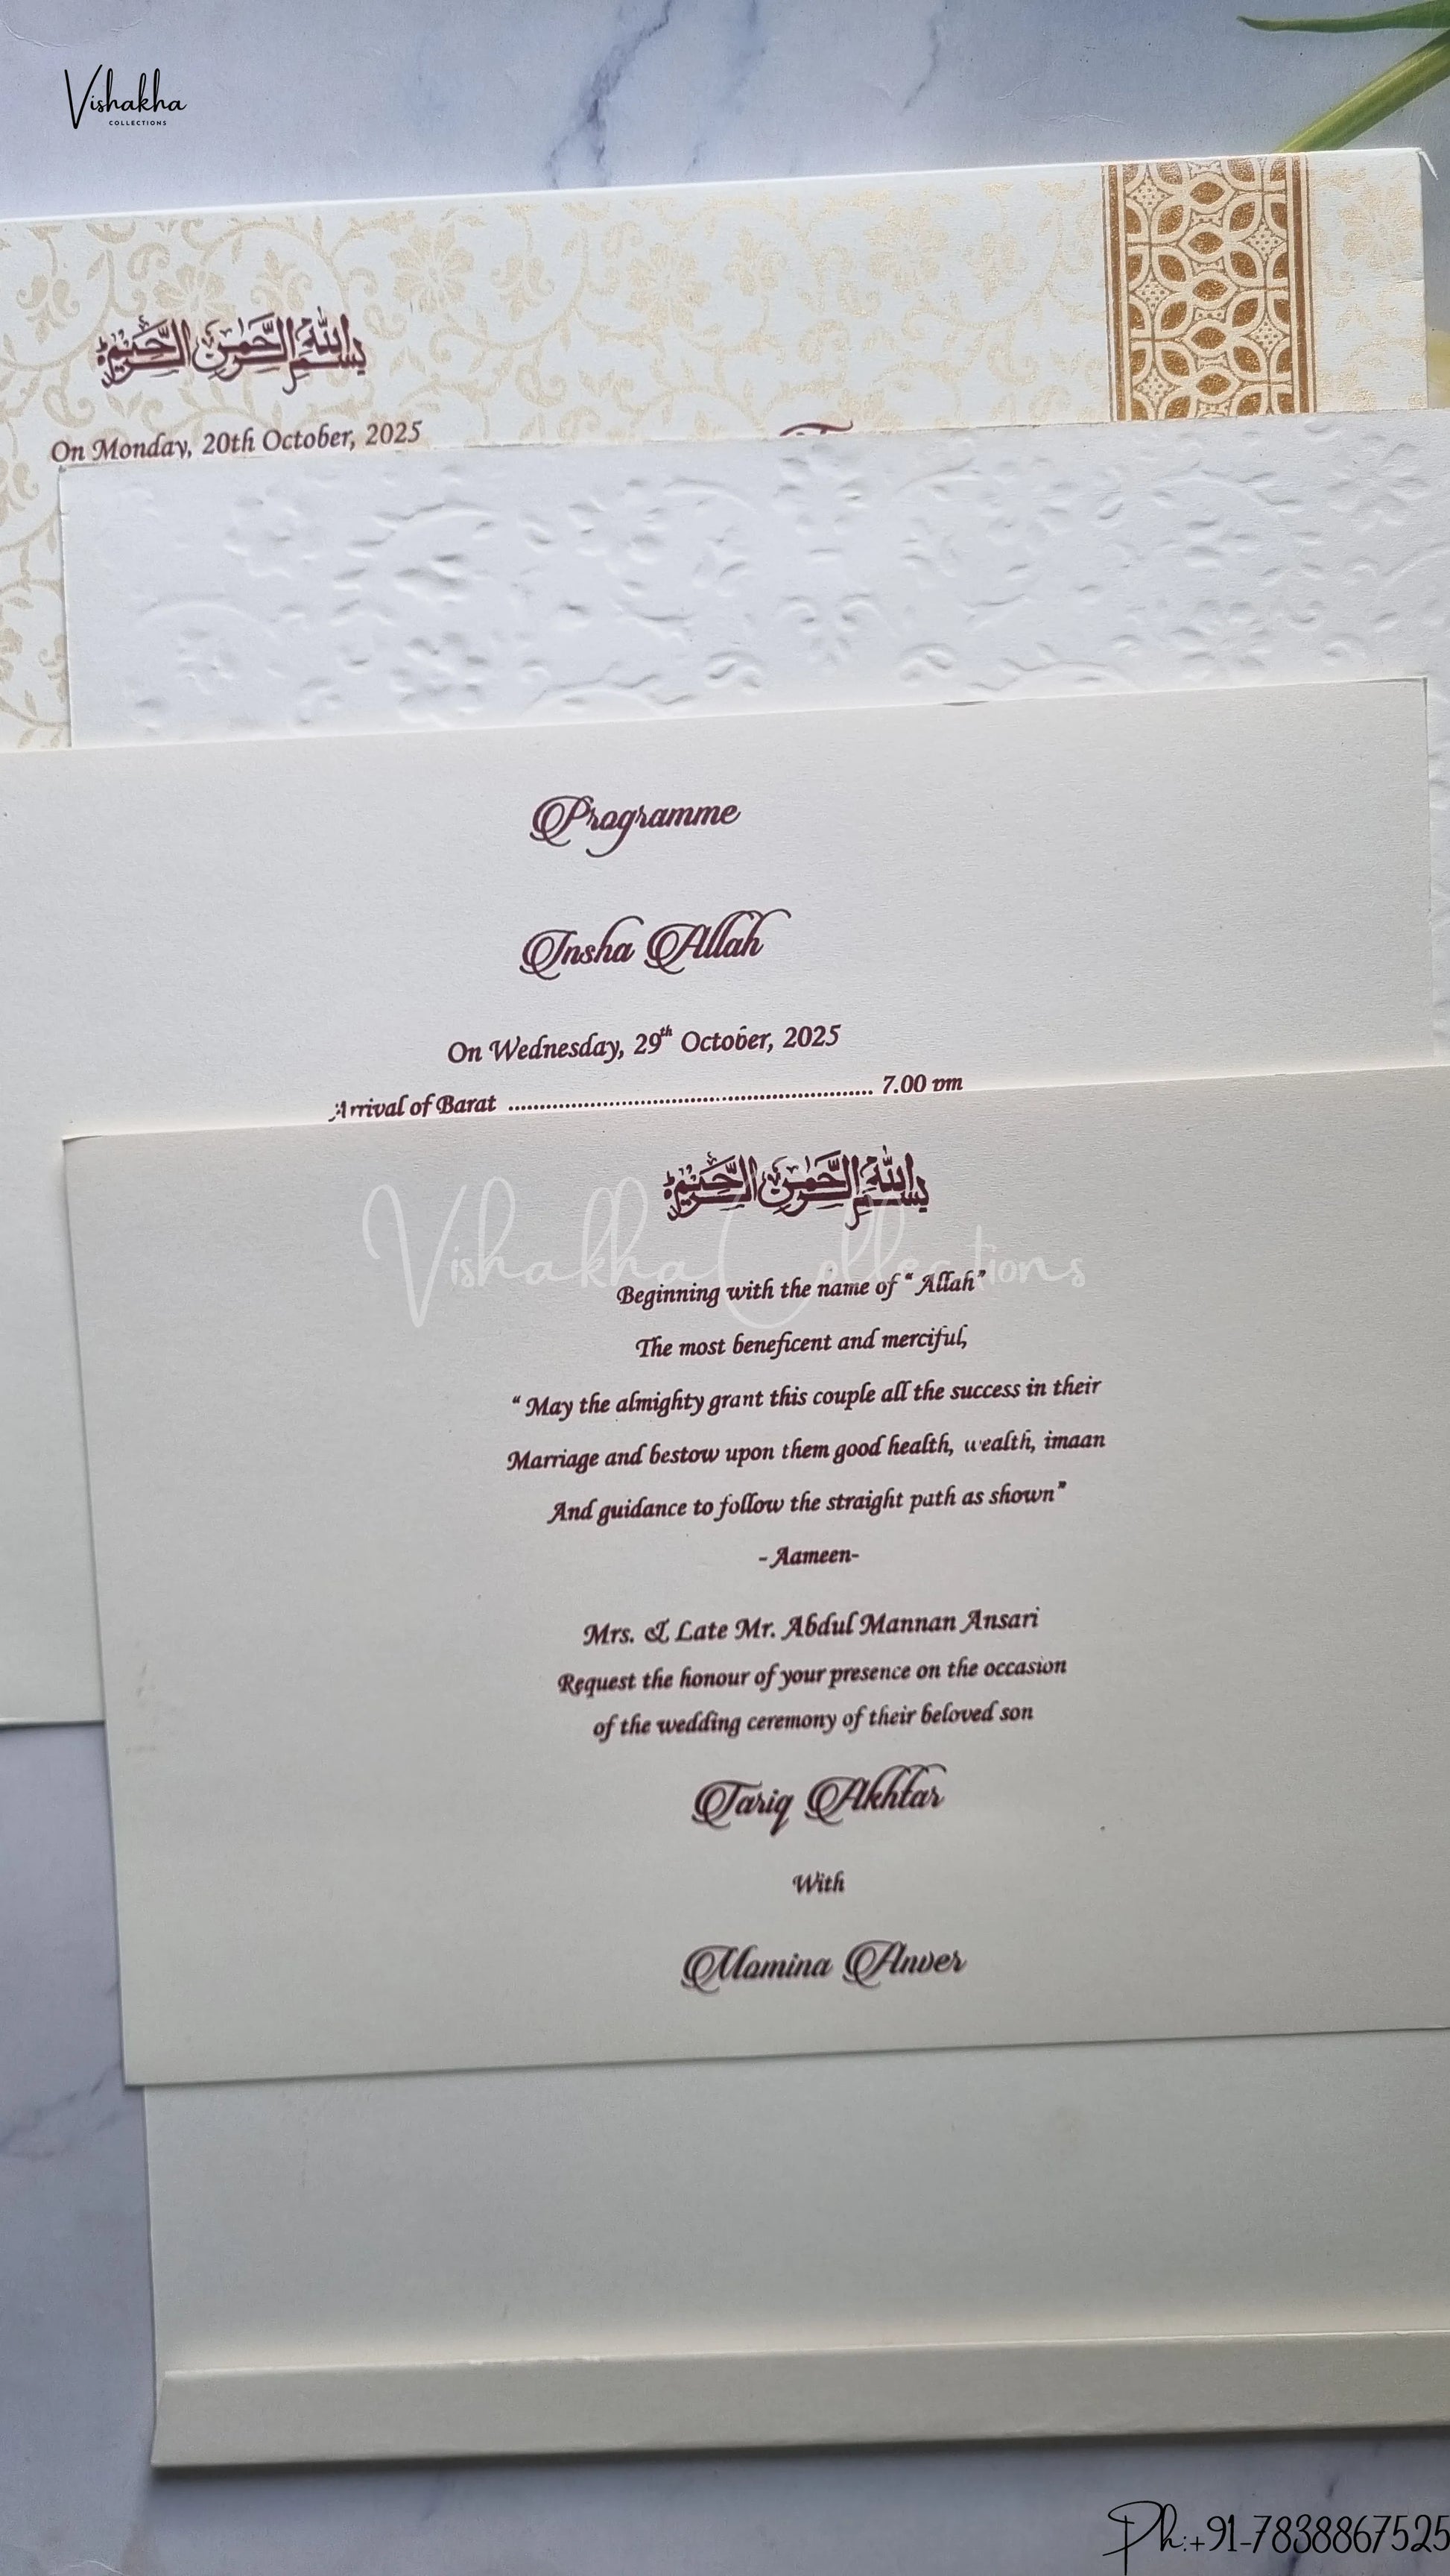 Vishakha
COLLECTIONS
بسم الله الرحمن الرحيم
On Monday, 20th October, 2025
Programme
Insha Allah
On Wednesday, 29th October, 2025
Arrival of Barat ........................................................ 7.00 pm
بسم الله الرحمن الرحيم
Vishakha Collections
Beginning with the name of “Allah”
The most beneficent and merciful,
“May the almighty grant this couple all the success in their
Marriage and bestow upon them good health, wealth, imaan
And guidance to follow the straight path as shown”
-Aameen-
Mrs. & Late Mr. Abdul Mannan Ansari
Request the honour of your presence on the occasion
of the wedding ceremony of their beloved son
Tariq Akhtar
With
Momina Anver
Ph:+91-7838867525